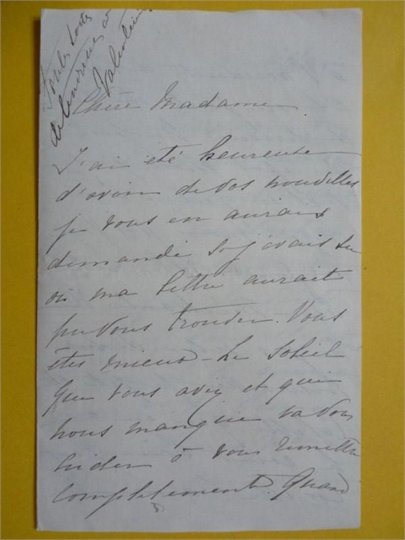 toutes
de
Chère Madame
J'ai été heureuse
d'avoir de vos nouvelles
je vous en aurais
demandé si j'avais su
où ma lettre aurait
pu vous trouver. Vous
êtes mieux - Le soleil
que vous avez et qui
nous manque va vous
aider à vous remettre
complètement. Quand